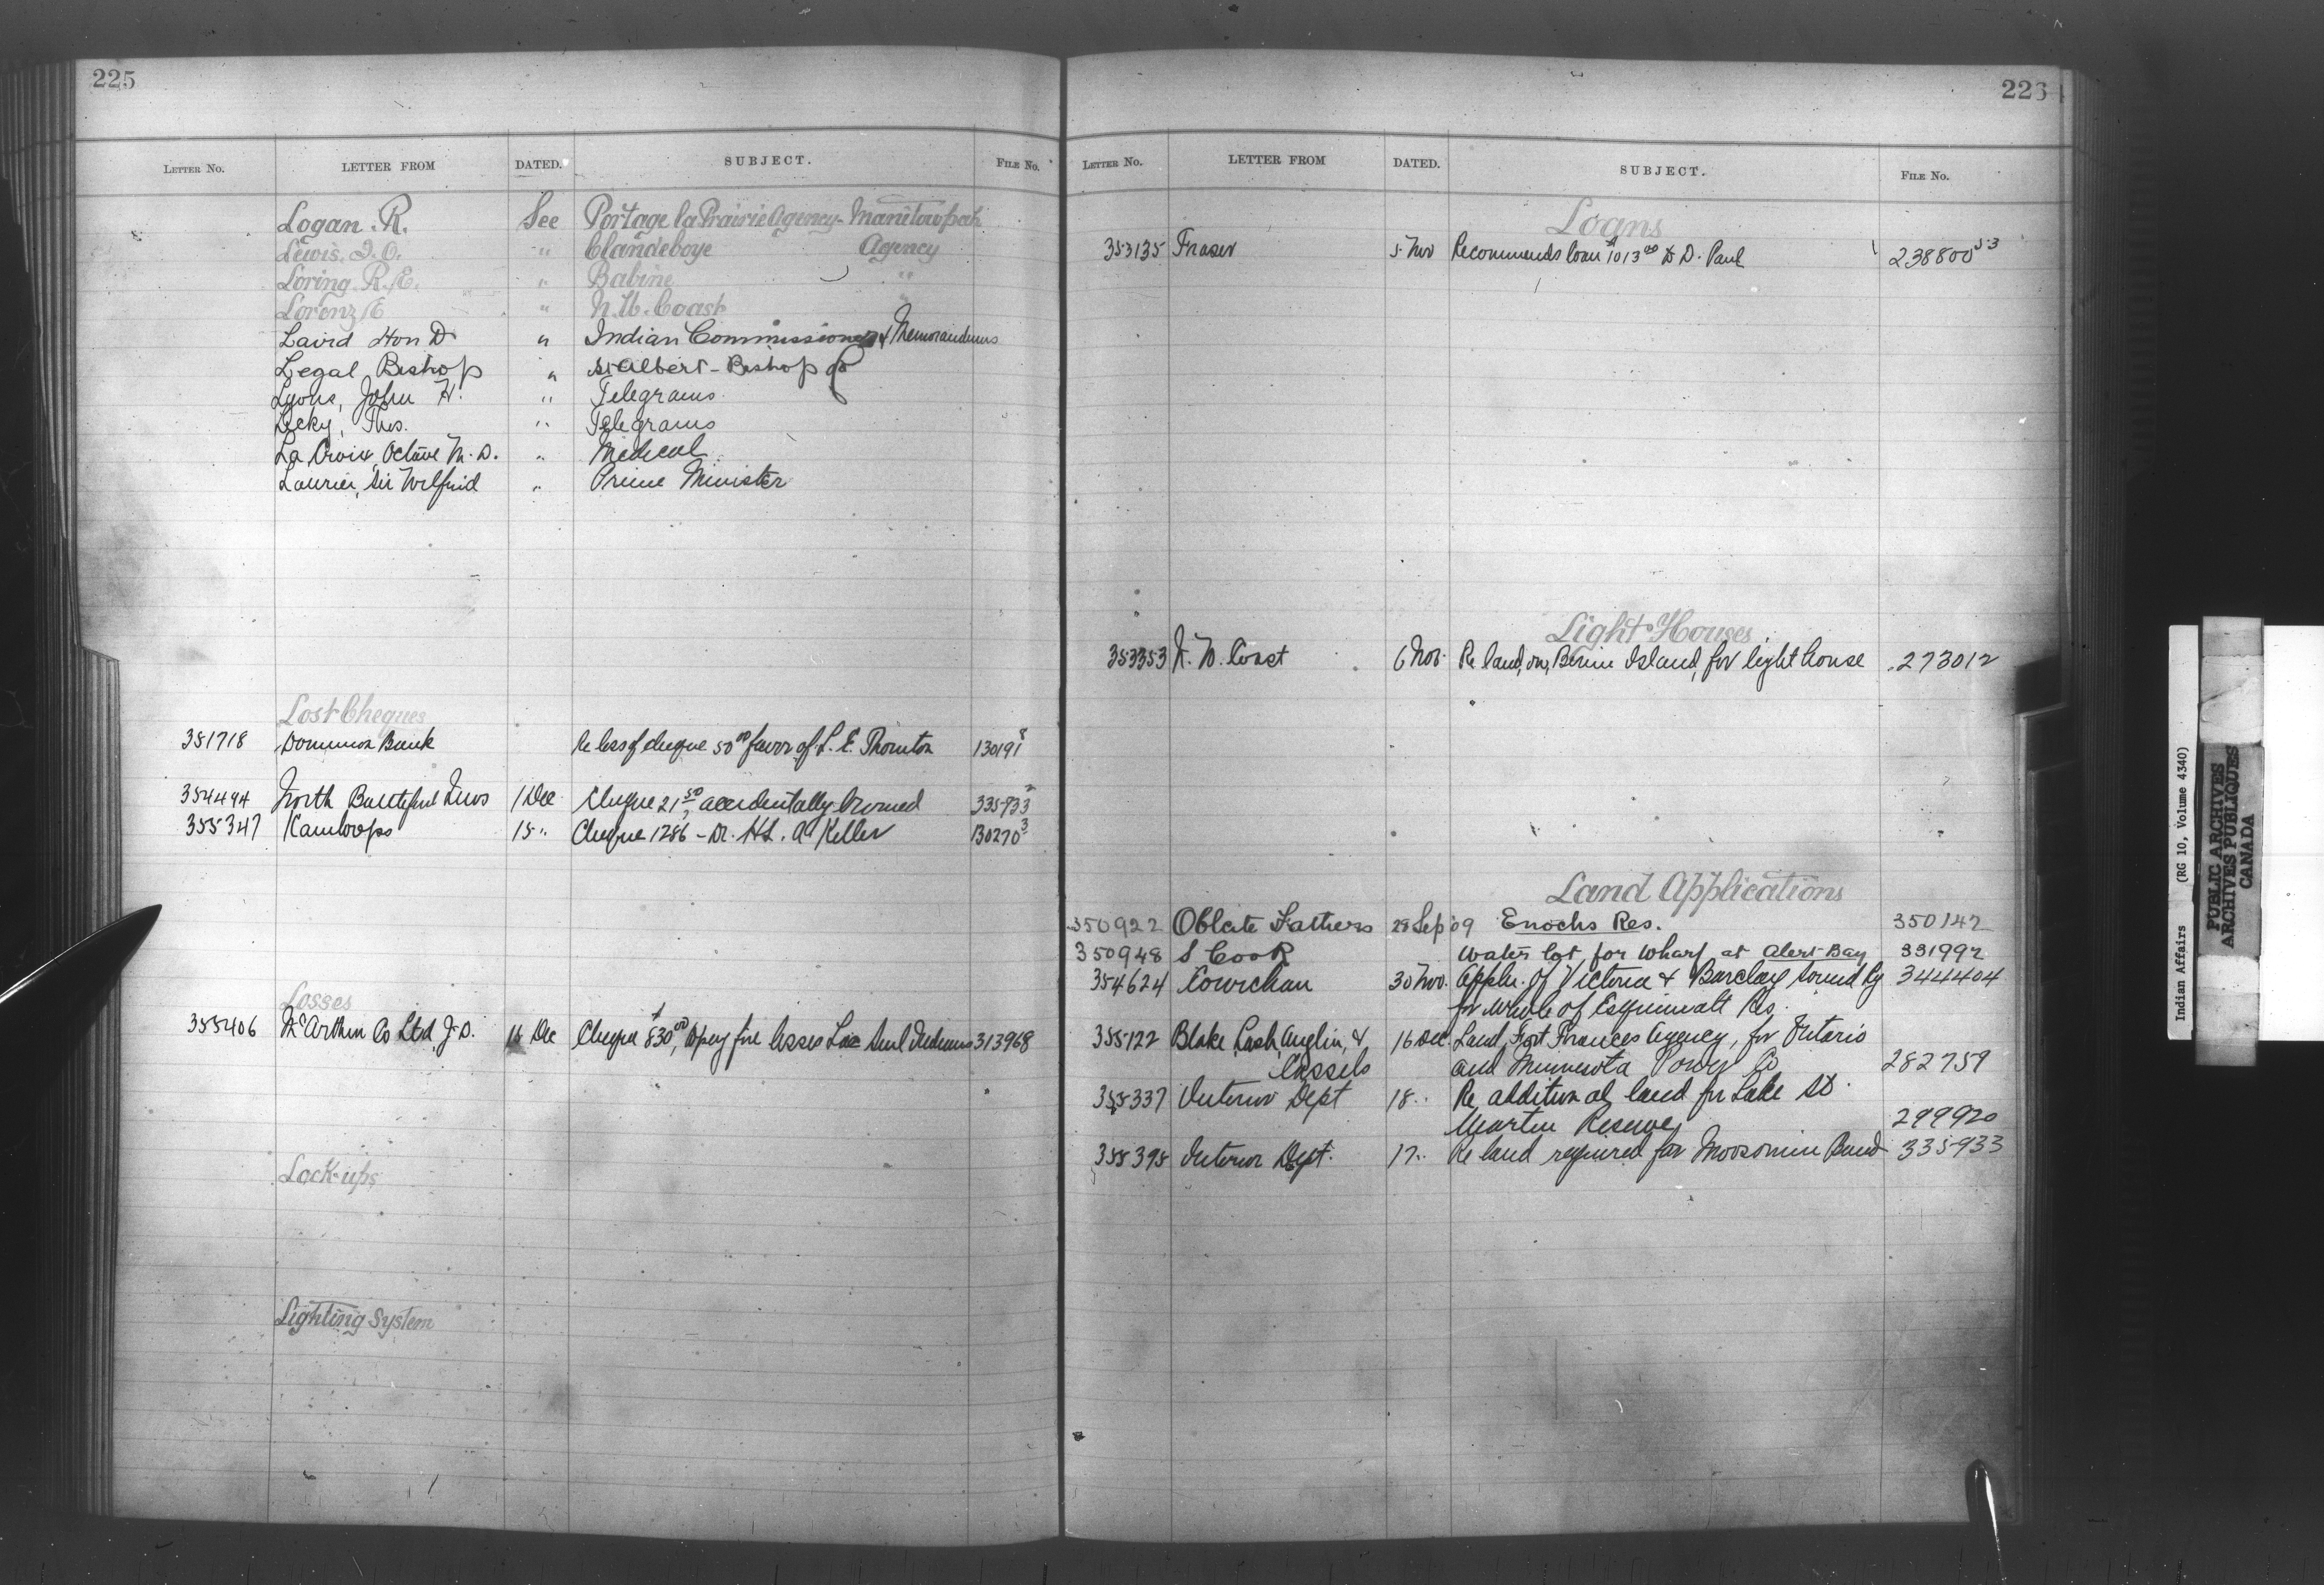 225
LETTER NO. LETTER FROM DATED. SUBJECT. FILE NO.
Logan. R. See Portage la Prairie Agency - Manitowpah
Lewis. J. O. " Clandeboye Agency
Loring. R. E. " Babine "
Lorenz E " N. W. Coast "
Laird Hon D. " Indian Commissioner & Memorandums
Legal, Bishop " St Albert - Bishop of
Lyons, John H. " Telegrams
Lecky, Thos. " Telegrams
La Croix, Octave M. D. " Medical
Laurier, Sir Wilfrid " Prime Minister
Lost Cheques
351718 Dominion Bank Re loss of cheque 50 00 favor of L. E. Thornton 130191 8
354494 North Battleford News 1 Dec Cheque 21 50, accidentally burned 335933 2
355347 Kamloops 15 " Cheque 1286 - Dr. H. A Keller 130270 3
Losses
355406 McArthur Co Ltd, J. D. 16 Dec Cheque $830 00, to pay fire losses Lac Seul Indians 313968
Lock-ups
Lighting System
226
LETTER NO. LETTER FROM DATED. SUBJECT. FILE NO.
Loans
353135 Fraser 5 Nov Recommends loan $1013 00 to D. Paul 238800 53
Light Houses
353353 N. W. Coast 6 Nov. Re land, on, Birnie Island, for light house 273012
Land Applications
350922 Oblate Fathers 28 Sep 09 Enochs Res. 350142
350948 S Cook Water lot, for wharf at Alert Bay 331992
354624 Cowichan 30 Nov. Appln. of Victoria & Barclay Sound Ry 344404
for whole of Esquimalt Res.
355122 Blake, Lash, Anglin, & 16 Dec Land, Fort Frances Agency, for Ontario
Cassels and Minnesota Power Co 282759
355337 Interior Dept 18 " Re additional land for Lake St.
Martin Reserve 299920
355395 Interior Dept. 17 " Re land required for Moosomin Band 335933
Indian Affairs (RG 10, Volume 4340)
PUBLIC ARCHIVES
ARCHIVES PUBLIQUES
CANADA